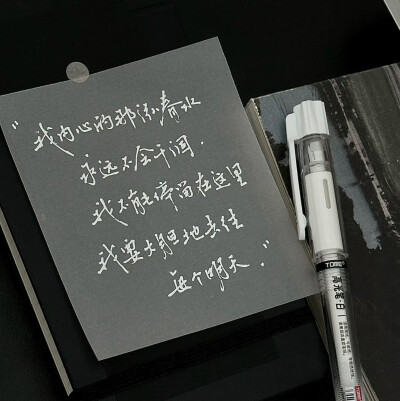 "我内心的那派春水
永远不会干涸.
我不能停留在这里
我要大胆地去往
每个明天."
高光笔·白